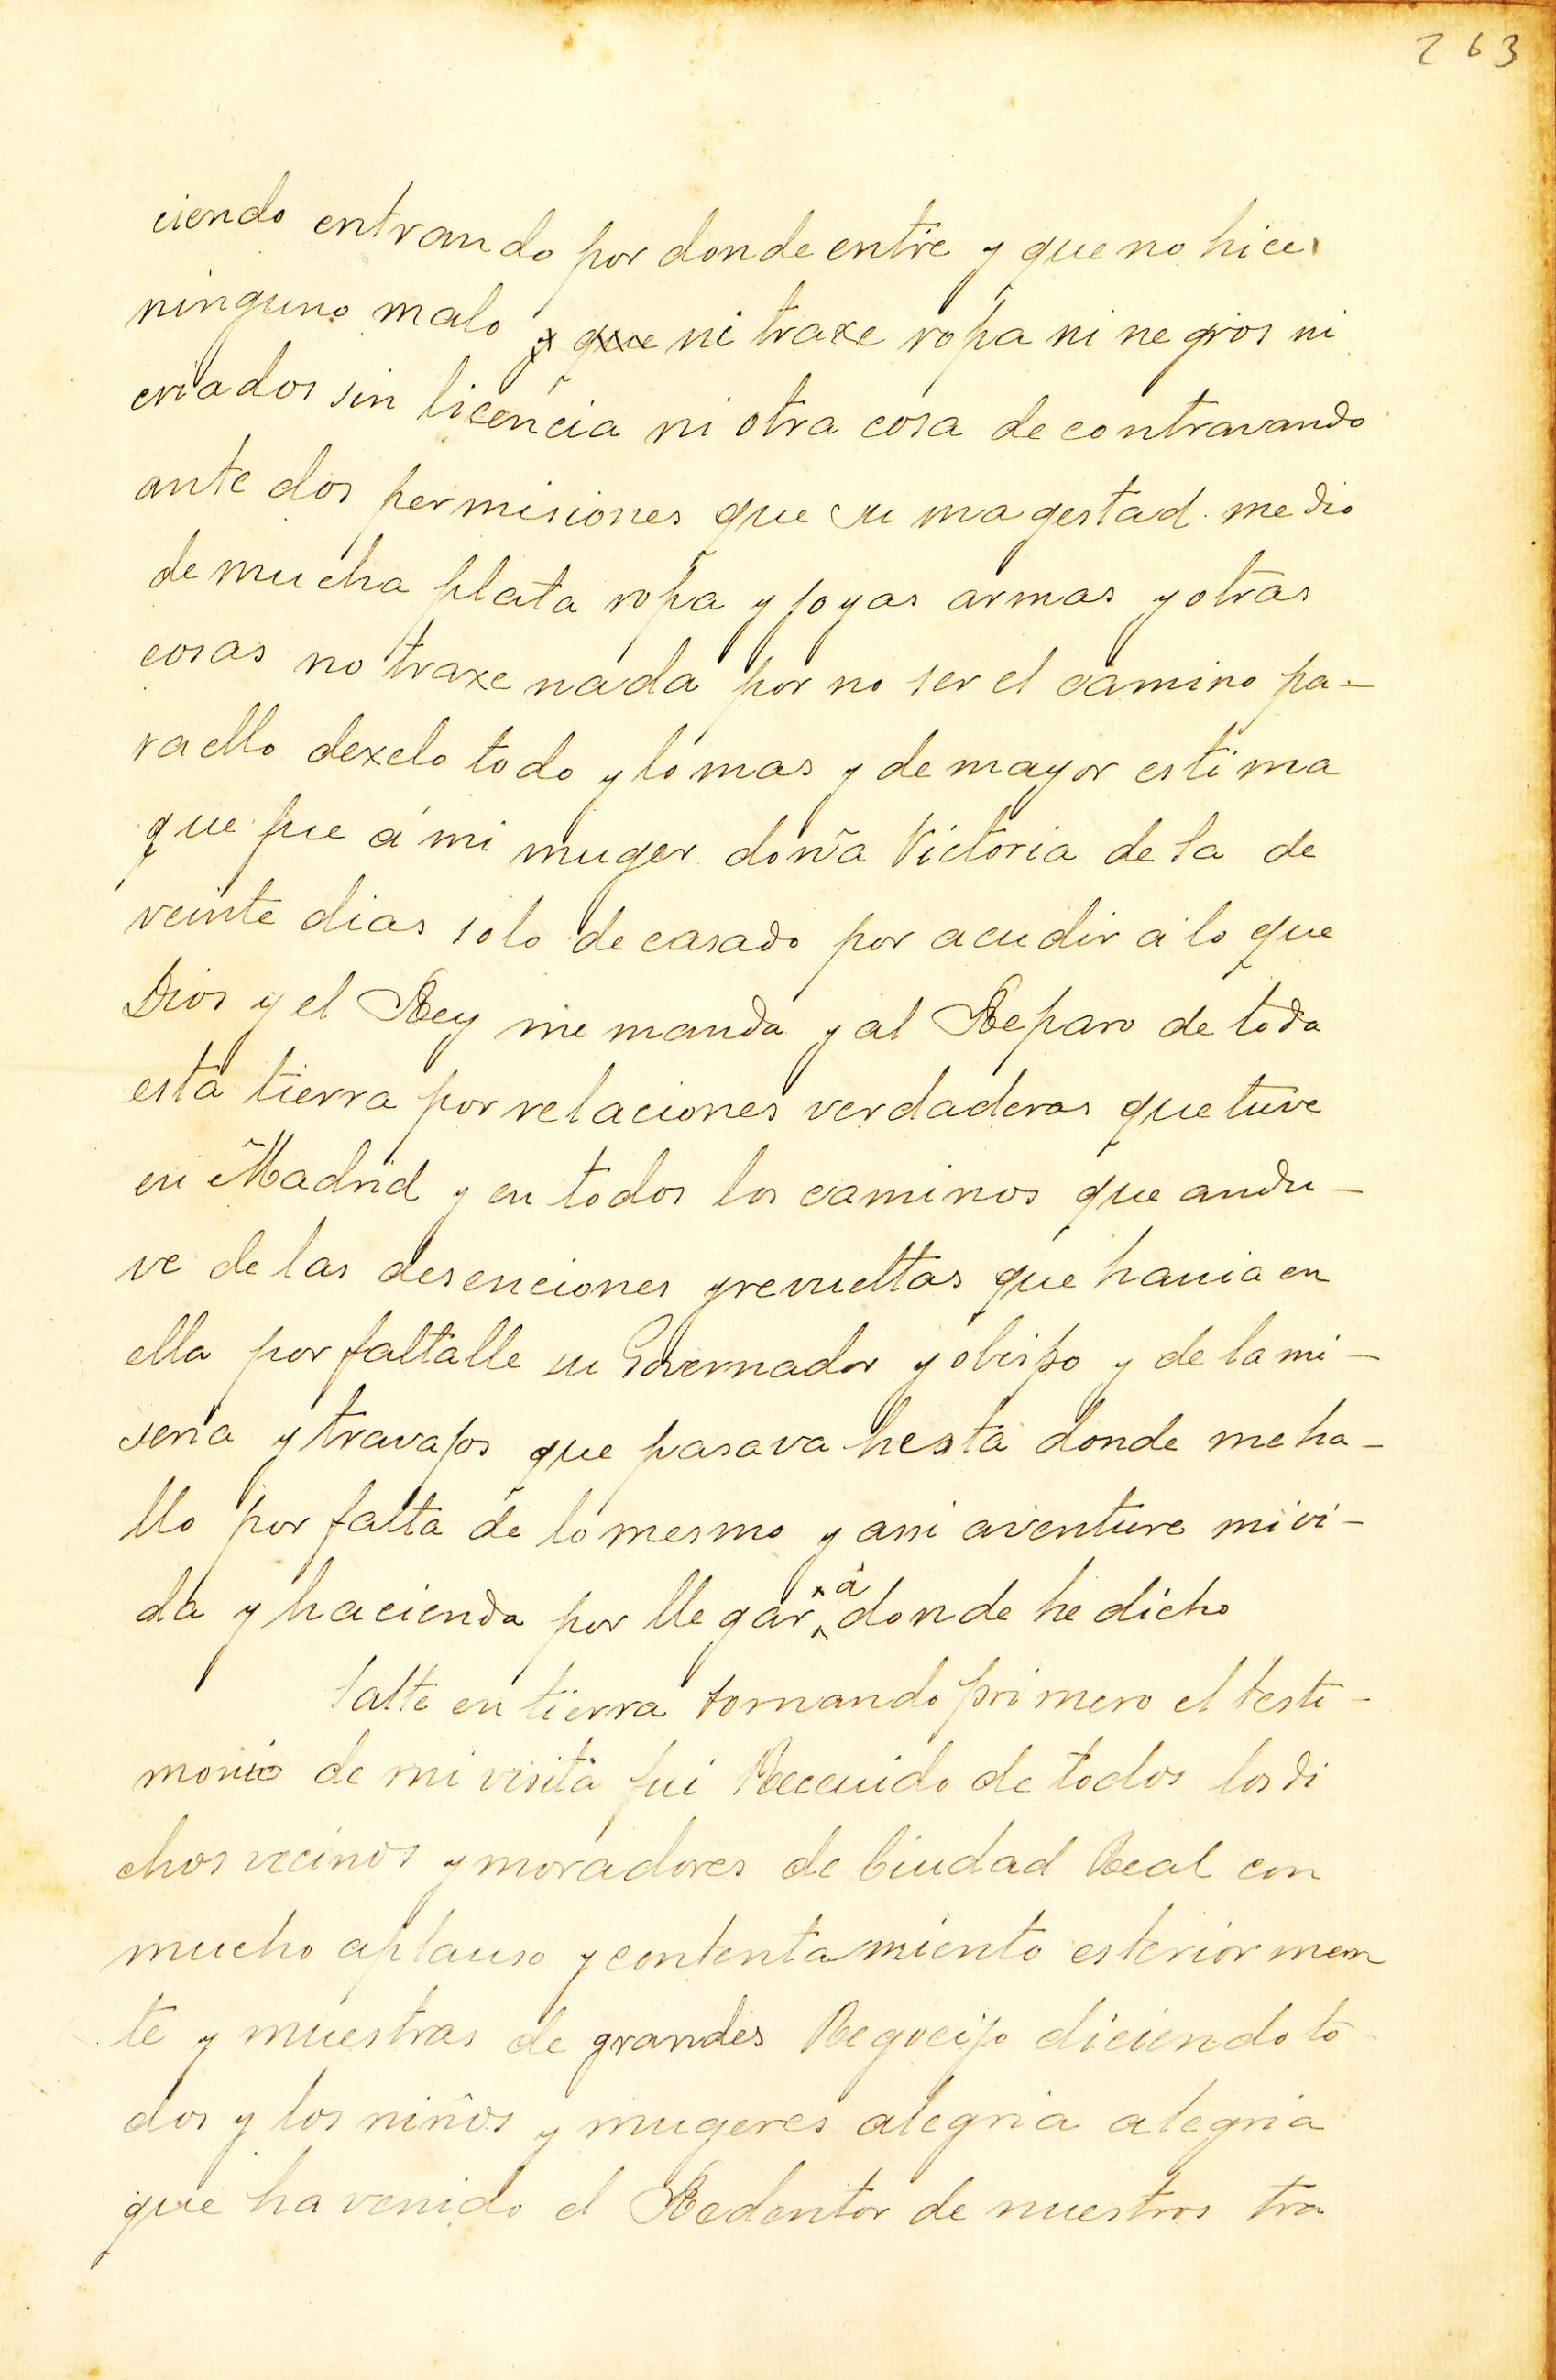 263
ciendo entrando por donde entre y que no hice
ninguno malo y que ni traxe ropa ni negros ni
criados sin licencia ni otra cosa de contravando
ante dos permisiones que su magestad me dio
de mucha plata ropa y joyas armas y otras
cosas no traxe nada por no ser el camino pa-
ra ello dexelo todo y lo mas y de mayor estima
que fue á mi muger doña Victoria de Sa de
veinte dias solo de casado por acudir a lo que
Dios y el Rey me manda y al Reparo de toda
esta tierra por relaciones verdaderas que tuve
en Madrid y en todos los caminos que andu-
ve de las desenciones y revueltas que hauia en
ella por faltalle su Governador y obispo y de la mi-
seria y travajos que pasava hesta donde me ha-
llo por falta de lo mesmo y assi aventure mi vi-
da y hacienda por llegar á donde he dicho
Salte en tierra tomando primero el testi-
monio de mi visita fui Receuido de todos los di
chos vecinos y moradores de Ciudad Real con
mucho aplauso y contentamiento esteriormen
te y muestras de grandes Regocijo diciendo to-
dos y los niños y mugeres alegria alegria
que ha venido el Redentor de nuestros tra